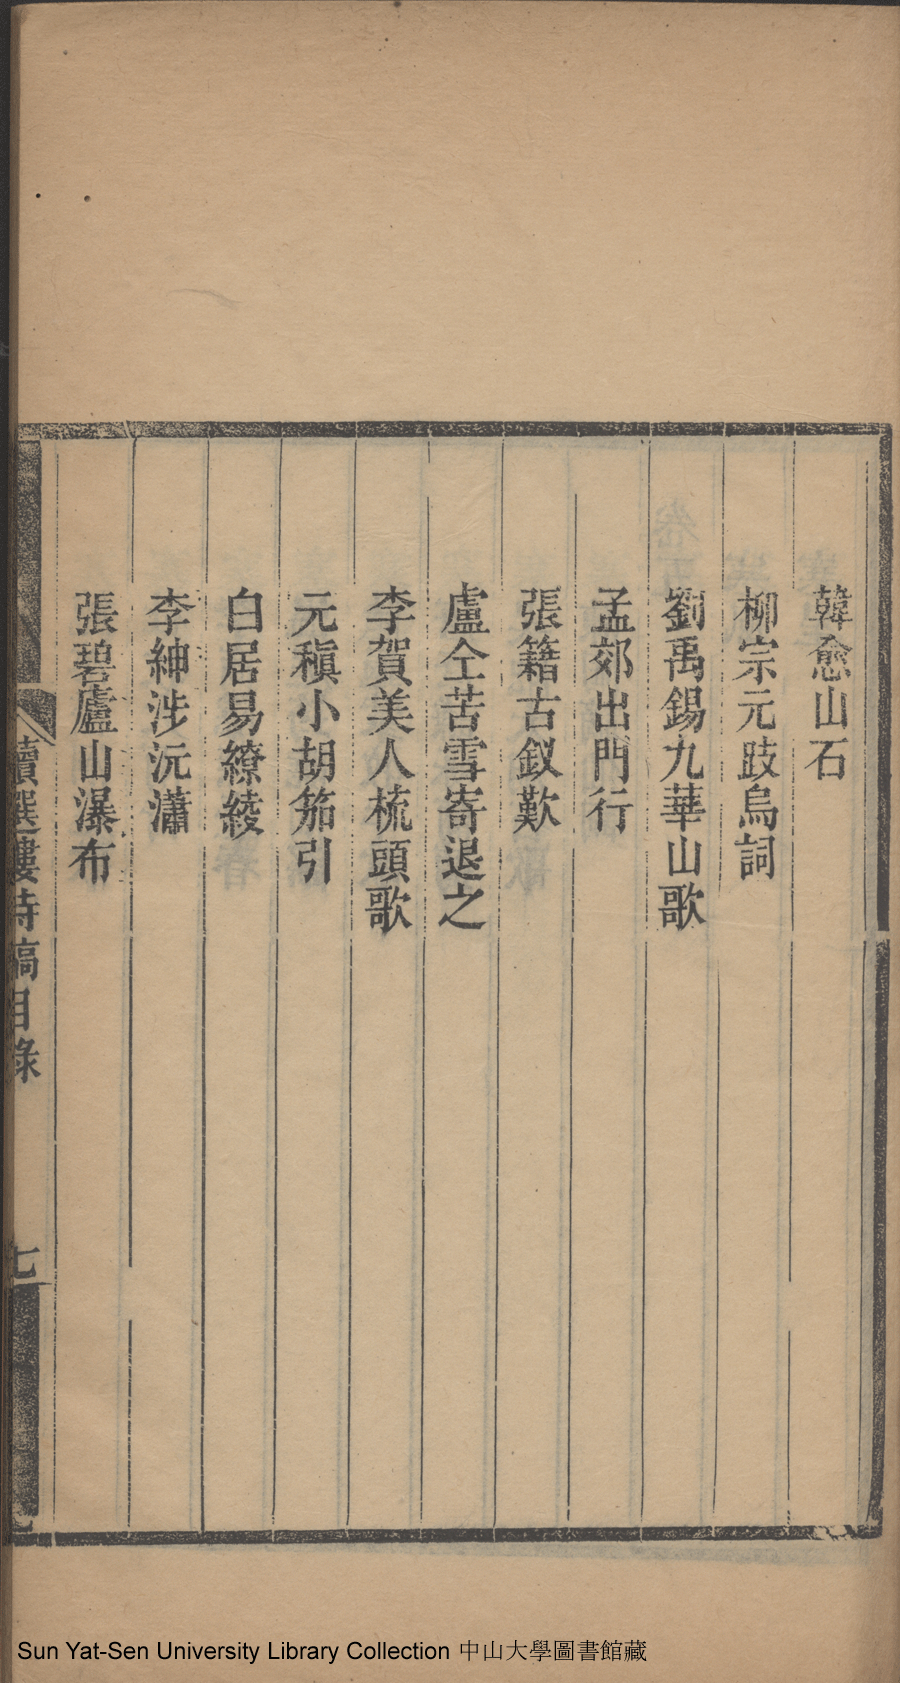 韓愈山石
柳宗元跂烏詞
劉禹錫九華山歌
孟郊出門行
張籍古釵歎
盧仝苦雪寄退之
李賀美人梳頭歌
元稹小胡笳引
白居易繚綾
李紳涉沅瀟
張碧廬山瀑布
續選樓詩稿目錄
七
Sun Yat-Sen University Library Collection 中山大學圖書館藏